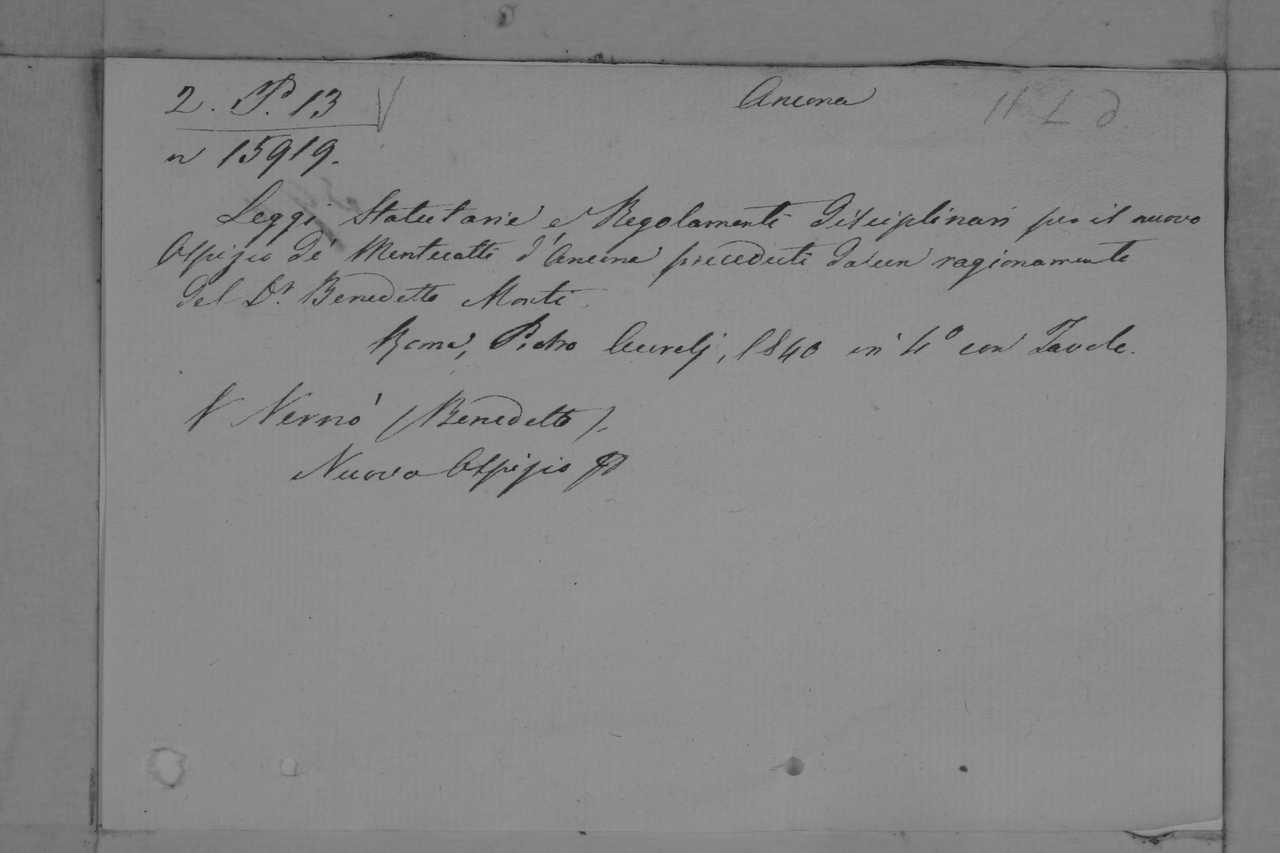 2. P. 13
Ancona
n 15919.
Leggi Statutarie e Regolamenti disciplinari per il nuovo
Ospizio de' Mentecatti d'Ancona preceduti da un ragionamento
del Dr. Benedetto Monti.
Roma, Pietro Aurelj, 1840 in 4º con Tavole.
V Vernò (Benedetto).
Nuovo Ospizio